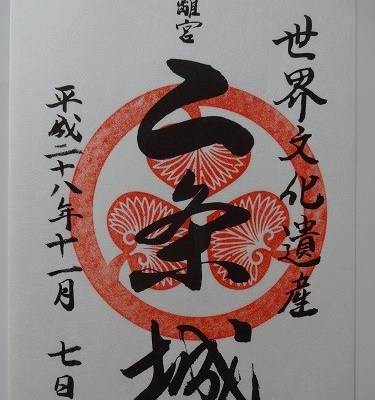 世界文化遺産
離宮
二条城
平成二十八年十一月 七日